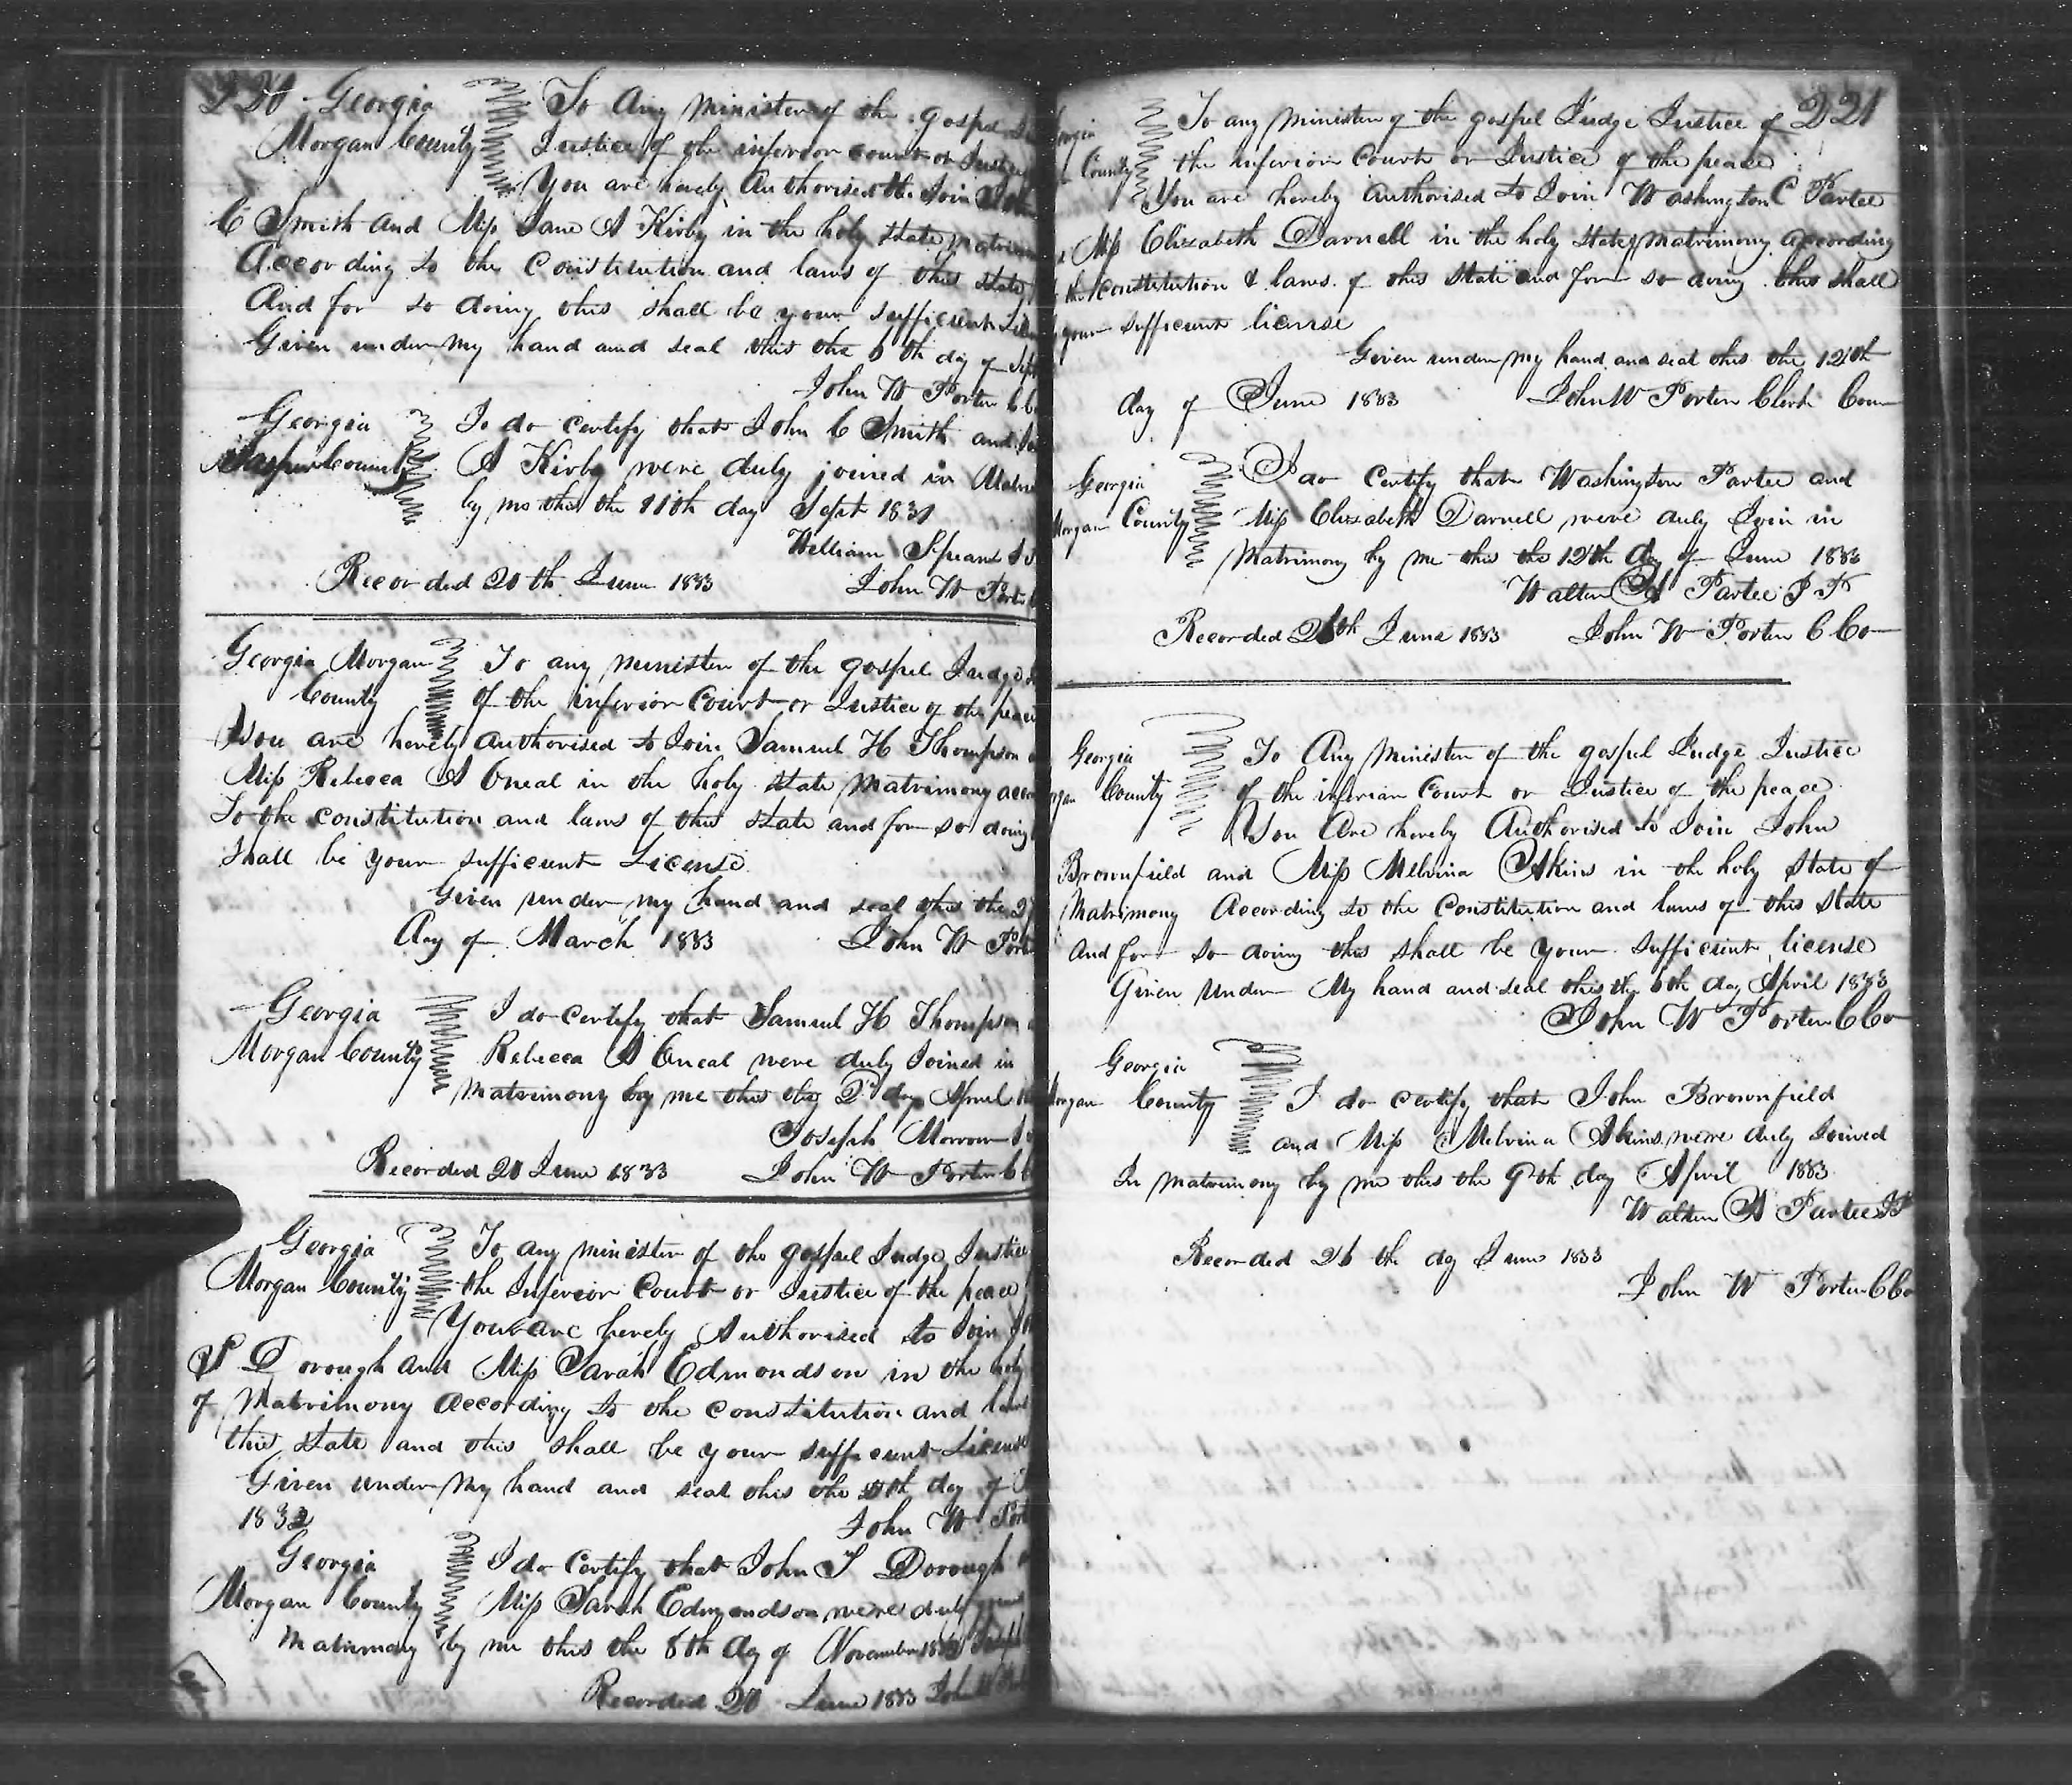 220 Georgia To Any Minister of the gospel
Morgan County Justice of the inferior court or Justice
You are hereby Authorised the Join
C Smith and Miss Jane A Kirby in the holy state
According to the Constitution and laws of this state
And for so doing this shall be your sufficient
Given under my hand and seal this the 6th day of Sept
John W Porter
Georgia I do certify that John C Smith and
Jasper County A Kirby were duly joined in
by me this the 11th day Sept 1831
William
Recorded 20th June 1833 John W Porter
Georgia Morgan To any minister of the gospel Judge
County of the inferior Court or Justice of the peace
You are hereby authorised to Join Samuel H Thompson
Miss Rebecca A Oneal in the holy state Matrimony
To the constitution and laws of this state and for so doing
shall be your sufficient License
Given under my hand and seal this the
day of March 1833 John W
Georgia I do certify that Samuel H Thompson
Morgan County Rebecca A Oneal were duly Joined in
Matrimony by me this the 2d day April
Joseph Morrow
Recorded 20 June 1833 John W Porter
Georgia To any minister of the gospel Judge Justice
Morgan County the Inferior Court or Justice of the peace
You are hereby Authorised to Join
S Dorough and Miss Sarah Edmondson in the holy
of Matrimony According to the constitution and laws
this state and this shall be your sufficient License
Given under My hand and seal this the 5th day of
1832 John W
Georgia I do Certify that John S Dorough
Morgan County Miss Sarah Edmondson were duly
Matrimony by me this the 8th day of November
Recorded 20 June 1833 John W
To any Minister of the gospel Judge Justice of 221
County the inferior Court or Justice of the peace
You are hereby Authorised to Join Washington C Partee
Miss Elizabeth Darnell in the holy state of Matrimony According
the constitution & laws of this state and for so doing this shall
your sufficient license
Given under my hand and seal this the 12th
day of June 1833 John W Porter Clerk
Georgia I do Certify that Washington Partee and
Morgan County Miss Elizabeth Darnell were duly Join in
Matrimony by me this the 12th day of June 1833
Walton A Partee J P
Recorded 26th June 1833 John W Porter C Co
Georgia To Any Minister of the gospel Judge Justice
County of the inferior Court or Justice of the peace
You Are hereby Authorised to Join John
Brownfield and Miss Melvina Akins in the holy State of
Matrimony According to the Constitution and laws of this State
And for so doing this shall be your sufficient license
Given Under My hand and seal this the 6th day April 1833
John W Porter C Co
Georgia
County I do certify that John Brownfield
and Miss Melvina Akins were duly Joined
In matrimony by me this the 9th day April 1833
Walton A Partee J P
Recorded 26 th day June 1833
John W Porter C Co